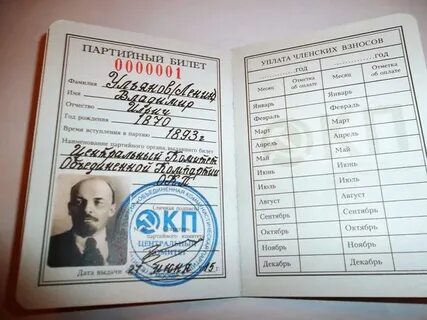 ПАРТИЙНЫЙ БИЛЕТ
0000001
Фамилия Ульянов (Ленин)
Имя Владимир
Отчество Ильич
Год рождения 1870
Время вступления в партию 1893 г
Наименование партийного органа, выдавшего билет
Центральный Комитет
Объединенной Компартии
ОКП
Личная подпись
ОКП
партийного комитета
ЦЕНТРАЛЬНЫЙ
КОМИТЕТ
Дата выдачи 15 г
УПЛАТА ЧЛЕНСКИХ ВЗНОСОВ
ГОД ГОД
Месяц Отметка об оплате Месяц Отметка об оплате
Январь Январь
Февраль Февраль
Март Март
Апрель Апрель
Май Май
Июнь Июнь
Июль Июль
Август Август
Сентябрь Сентябрь
Октябрь Октябрь
Ноябрь Ноябрь
Декабрь Декабрь